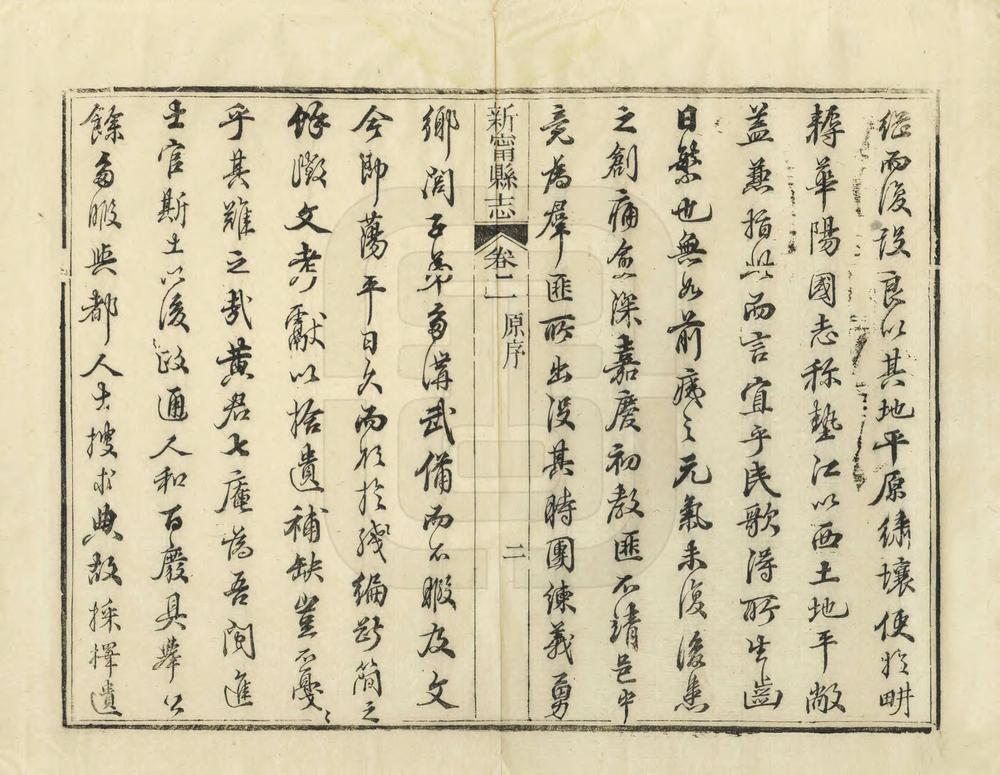 繼而復設良以其地平原繡壤便於畊
耨華陽國志称墊江以西土地平敞
蓋兼指此而言宜乎民歌得所生齒
日繁也無如前痍之元氣未復後患
之創痛愈深嘉慶初教匪不靖邑中
竟為羣匪所出沒其時團練義勇
新甯縣志
卷二
原序
二
鄉閭子弟多講武備而不暇及文
今卽蕩平日久而欲於殘編斷簡之
餘徵文考獻以拾遺補缺豈不戛々
乎其難之哉黄君七庵為吾閩進
士官斯土以後政通人和百廢具舉公
餘多暇與都人士搜求典故採擇遺